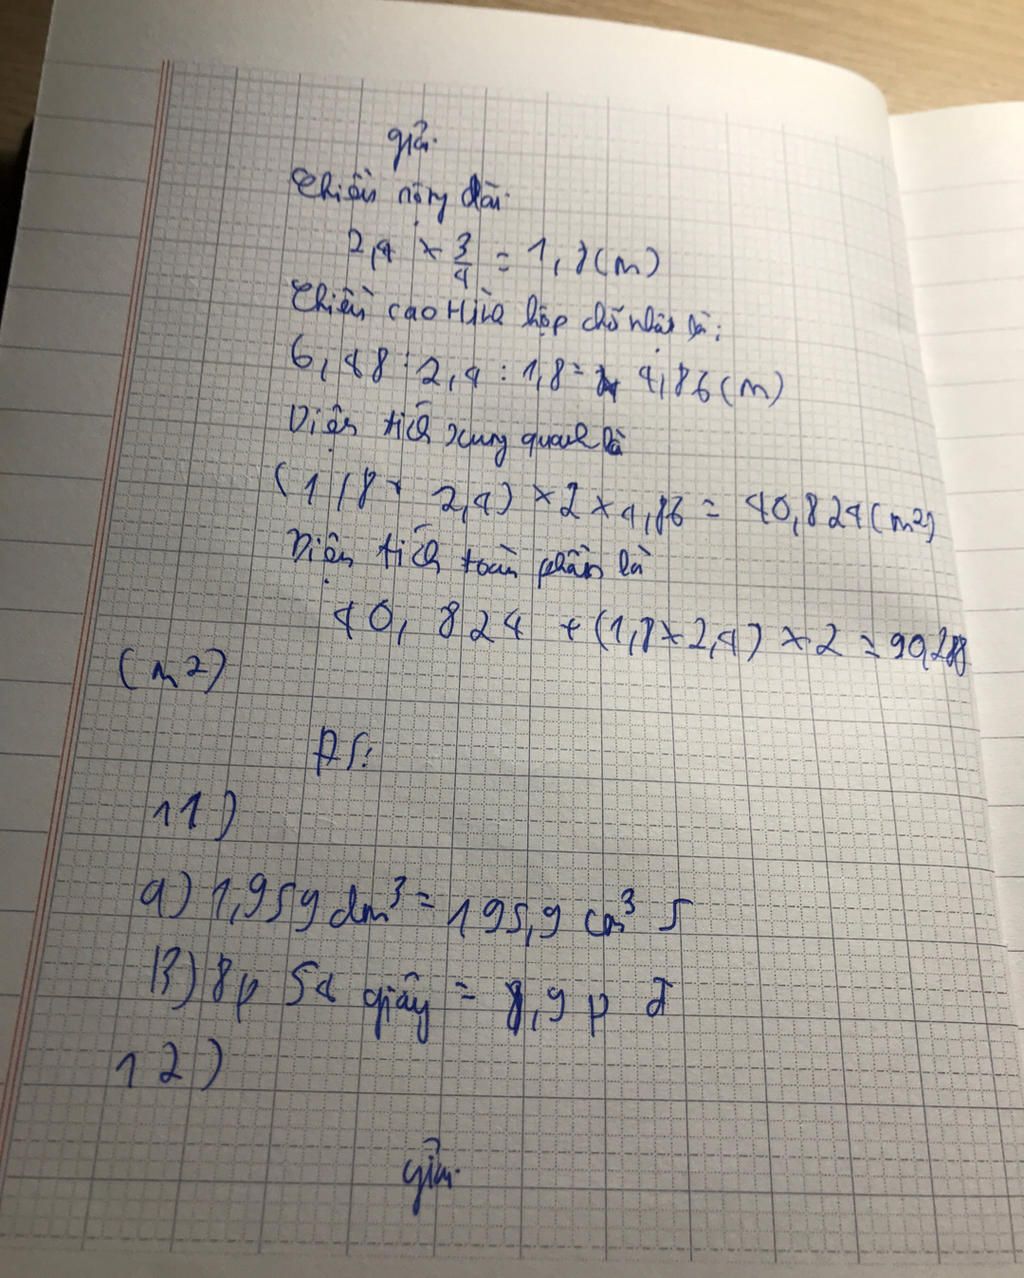 giải
Chiều rộng dài
2,4 × 3/4 = 1,8 (m)
Chiều cao Hình hộp chữ nhật là:
6,48 : 2,4 : 1,8 = 4,86 (m)
Diện tích xung quanh là
(1,8 + 2,4) × 2 × 4,86 = 40,824 (m2)
Diện tích toàn phần là
40,824 + (1,8 × 2,4) × 2 =
(m2)
ĐS:
11)
a) 1,959 dm³ = 195,9 cm³ S
B) 8p 54 giây = 8,9 p Đ
12)
giải